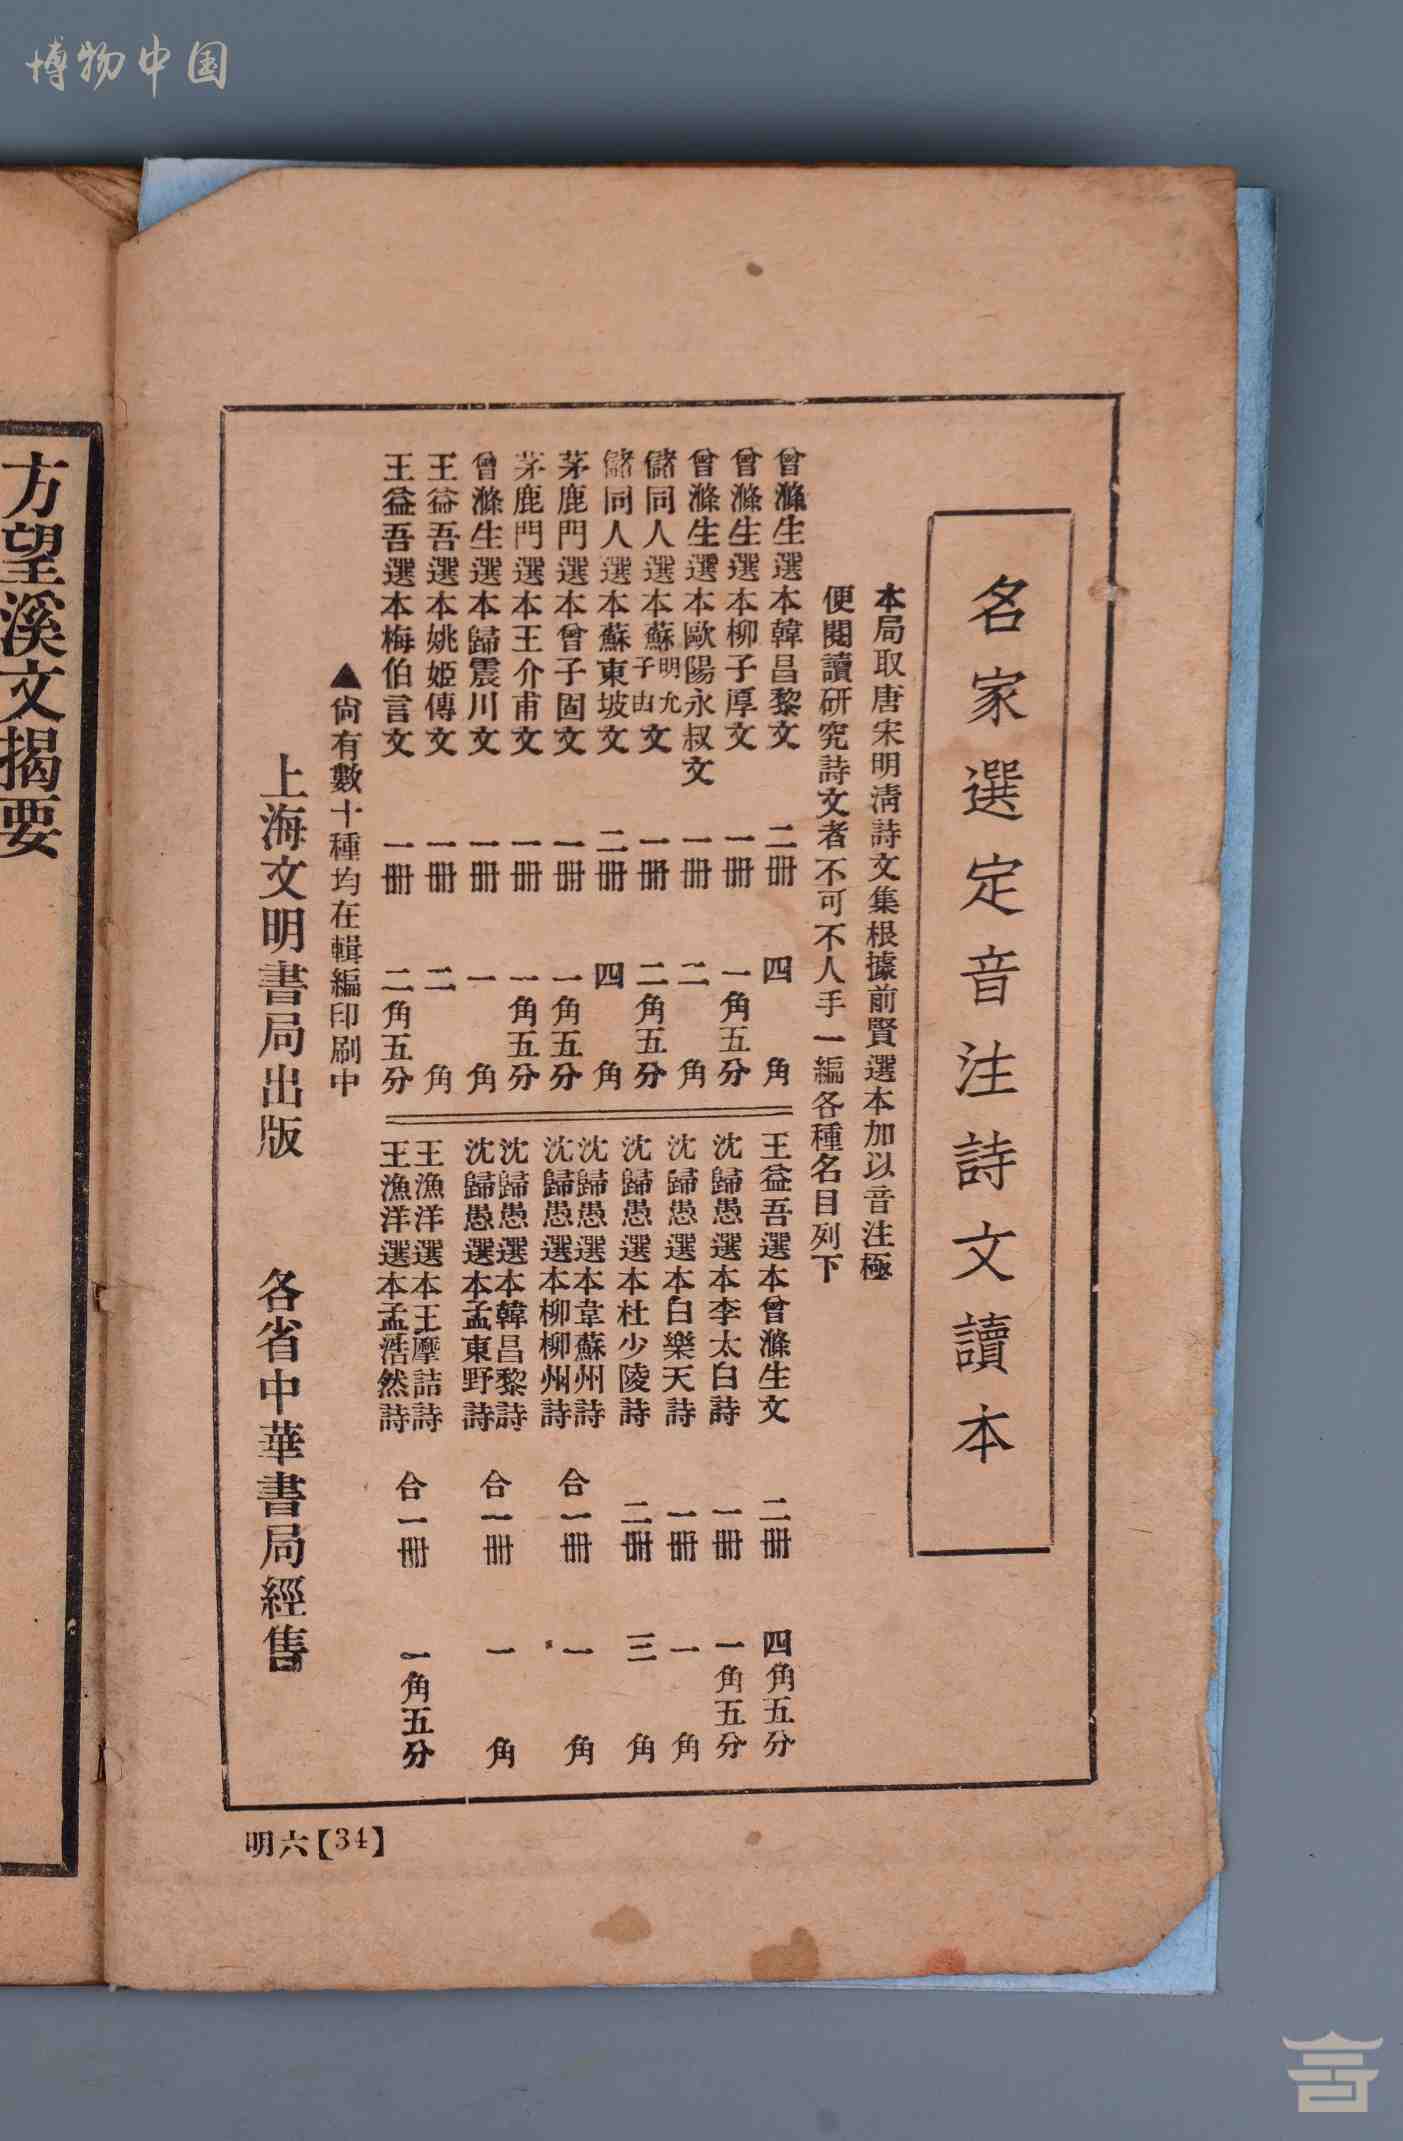 博物中国
名家選定音注詩文讀本
本局取唐宋明清詩文集根據前賢選本加以音注極
便閱讀研究詩文者不可不人手一編各種名目列下
曾滌生選本韓昌黎文 二冊 四角
曾滌生選本柳子厚文 一冊 一角五分
曾滌生選本歐陽永叔文 一冊 二角
儲同人選本蘇明允子由文 一冊 二角五分
儲同人選本蘇東坡文 二冊 四角
茅鹿門選本曾子固文 一冊 一角五分
茅鹿門選本王介甫文 一冊 一角五分
曾滌生選本歸震川文 一冊 一角
王益吾選本姚姬傳文 一冊 二角
王益吾選本梅伯言文 一冊 二角五分
王益吾選本曾滌生文 二冊 四角五分
沈歸愚選本李太白詩 一冊 一角五分
沈歸愚選本白樂天詩 一冊 一角
沈歸愚選本杜少陵詩 二冊 三角
沈歸愚選本韋蘇州詩
沈歸愚選本柳柳州詩 合一冊 一角
沈歸愚選本韓昌黎詩
沈歸愚選本孟東野詩 合一冊 一角
王漁洋選本王摩詰詩
王漁洋選本孟浩然詩 合一冊 一角五分
▲尙有數十種均在輯編印刷中
上海文明書局出版 各省中華書局經售
明六【34】
方望溪文揭要